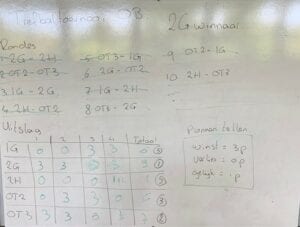 Trefbaltoernooi OB
2G winnaar
Rondes
1. 2G - 2H
2. OT2 - OT3
3. 1G - 2G
4. 2H - OT2
5. OT3 - 1G
6. 2G - OT2
7. 1G - 1H
8. OT3 - 2G
9. OT2 - 1G
10. 2H - OT3
Uitslag
1 2 3 4 Totaal
1G 0 0 3 3
2G 3 3
2H 0 0 0
OT2 0 3 3 0
OT3 3 3 0
Punten tellen
winst = 3p
verlies = 0p
gelijk = 1p